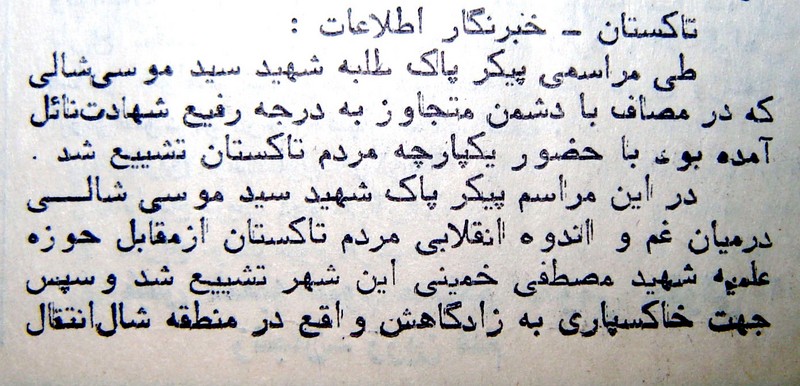 تاکستان - خبرنگار اطلاعات :
طی مراسمی پیکر پاک طلبه شهید سید موسی‌شالی
که در مصاف با دشمن متجاوز به درجه رفیع شهادت‌نائل
آمده بود با حضور یکپارچه مردم تاکستان تشییع شد .
در این مراسم پیکر پاک شهید سید موسی شالـــی
درمیان غم و اندوه انقلابی مردم تاکستان ازمقابل حوزه
علمیه شهید مصطفی خمینی این شهر تشییع شد و سپس
جهت خاکسپاری به زادگاهش واقع در منطقه شال‌انتقال